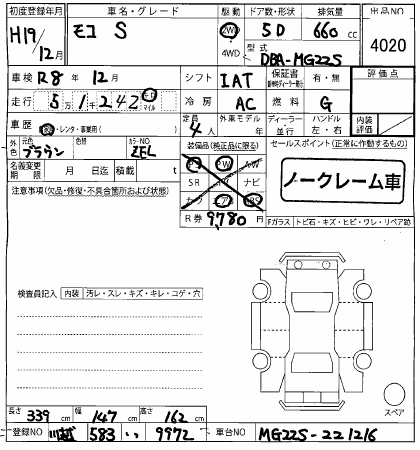 初度登録年月
車名・グレード
駆動
ドア数・形状
排気量
出品NO
H19/12月
モコ S
2WD
4WD
5D
660 cc
4020
型式
DBA-MG22S
車検 R8年 12月
シフト IAT
保証書
有・無
評価点
走行 5万1千242 キロ マイル
冷房 AC
燃料 G
車歴 自家・レンタ・事業用( )
定員 4人
外車モデル 年
ディーラー・並行
ハンドル 左・右
内装評価
外色
元色 ブラウン
色替
カラーNO ZEL
装備品(純正品に限る)
セールスポイント(正常に作動するもの)
名義変更期限 月 日迄
積載 t
PS PW AW
SR TV ナビ
カワ エアB ABS
ノークレーム車
注意事項(欠品・修復・不具合箇所および状態)
R券 9,780円
Fガラス
トビ石・キズ・ヒビ・ワレ・リペア跡
検査員記入
内装
汚レ・スレ・キズ・キレ・コゲ・穴
スペア
長さ 339 cm
幅 147 cm
高さ 162 cm
登録NO 川越 583 い 9972
車台NO MG22S-221216